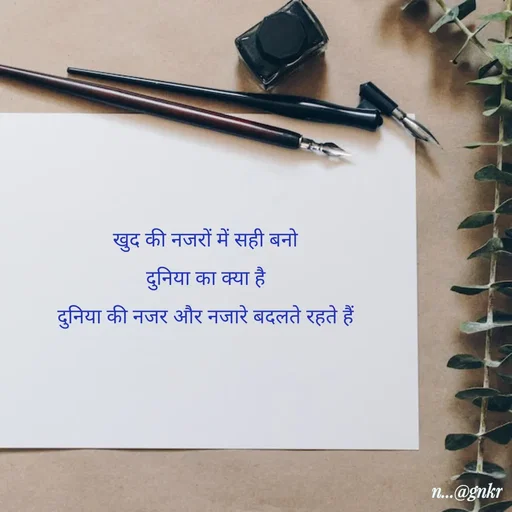 खुद की नजरों में सही बनो
दुनिया का क्या है
दुनिया की नजर और नजारे बदलते रहते हैं
n...@gnkr